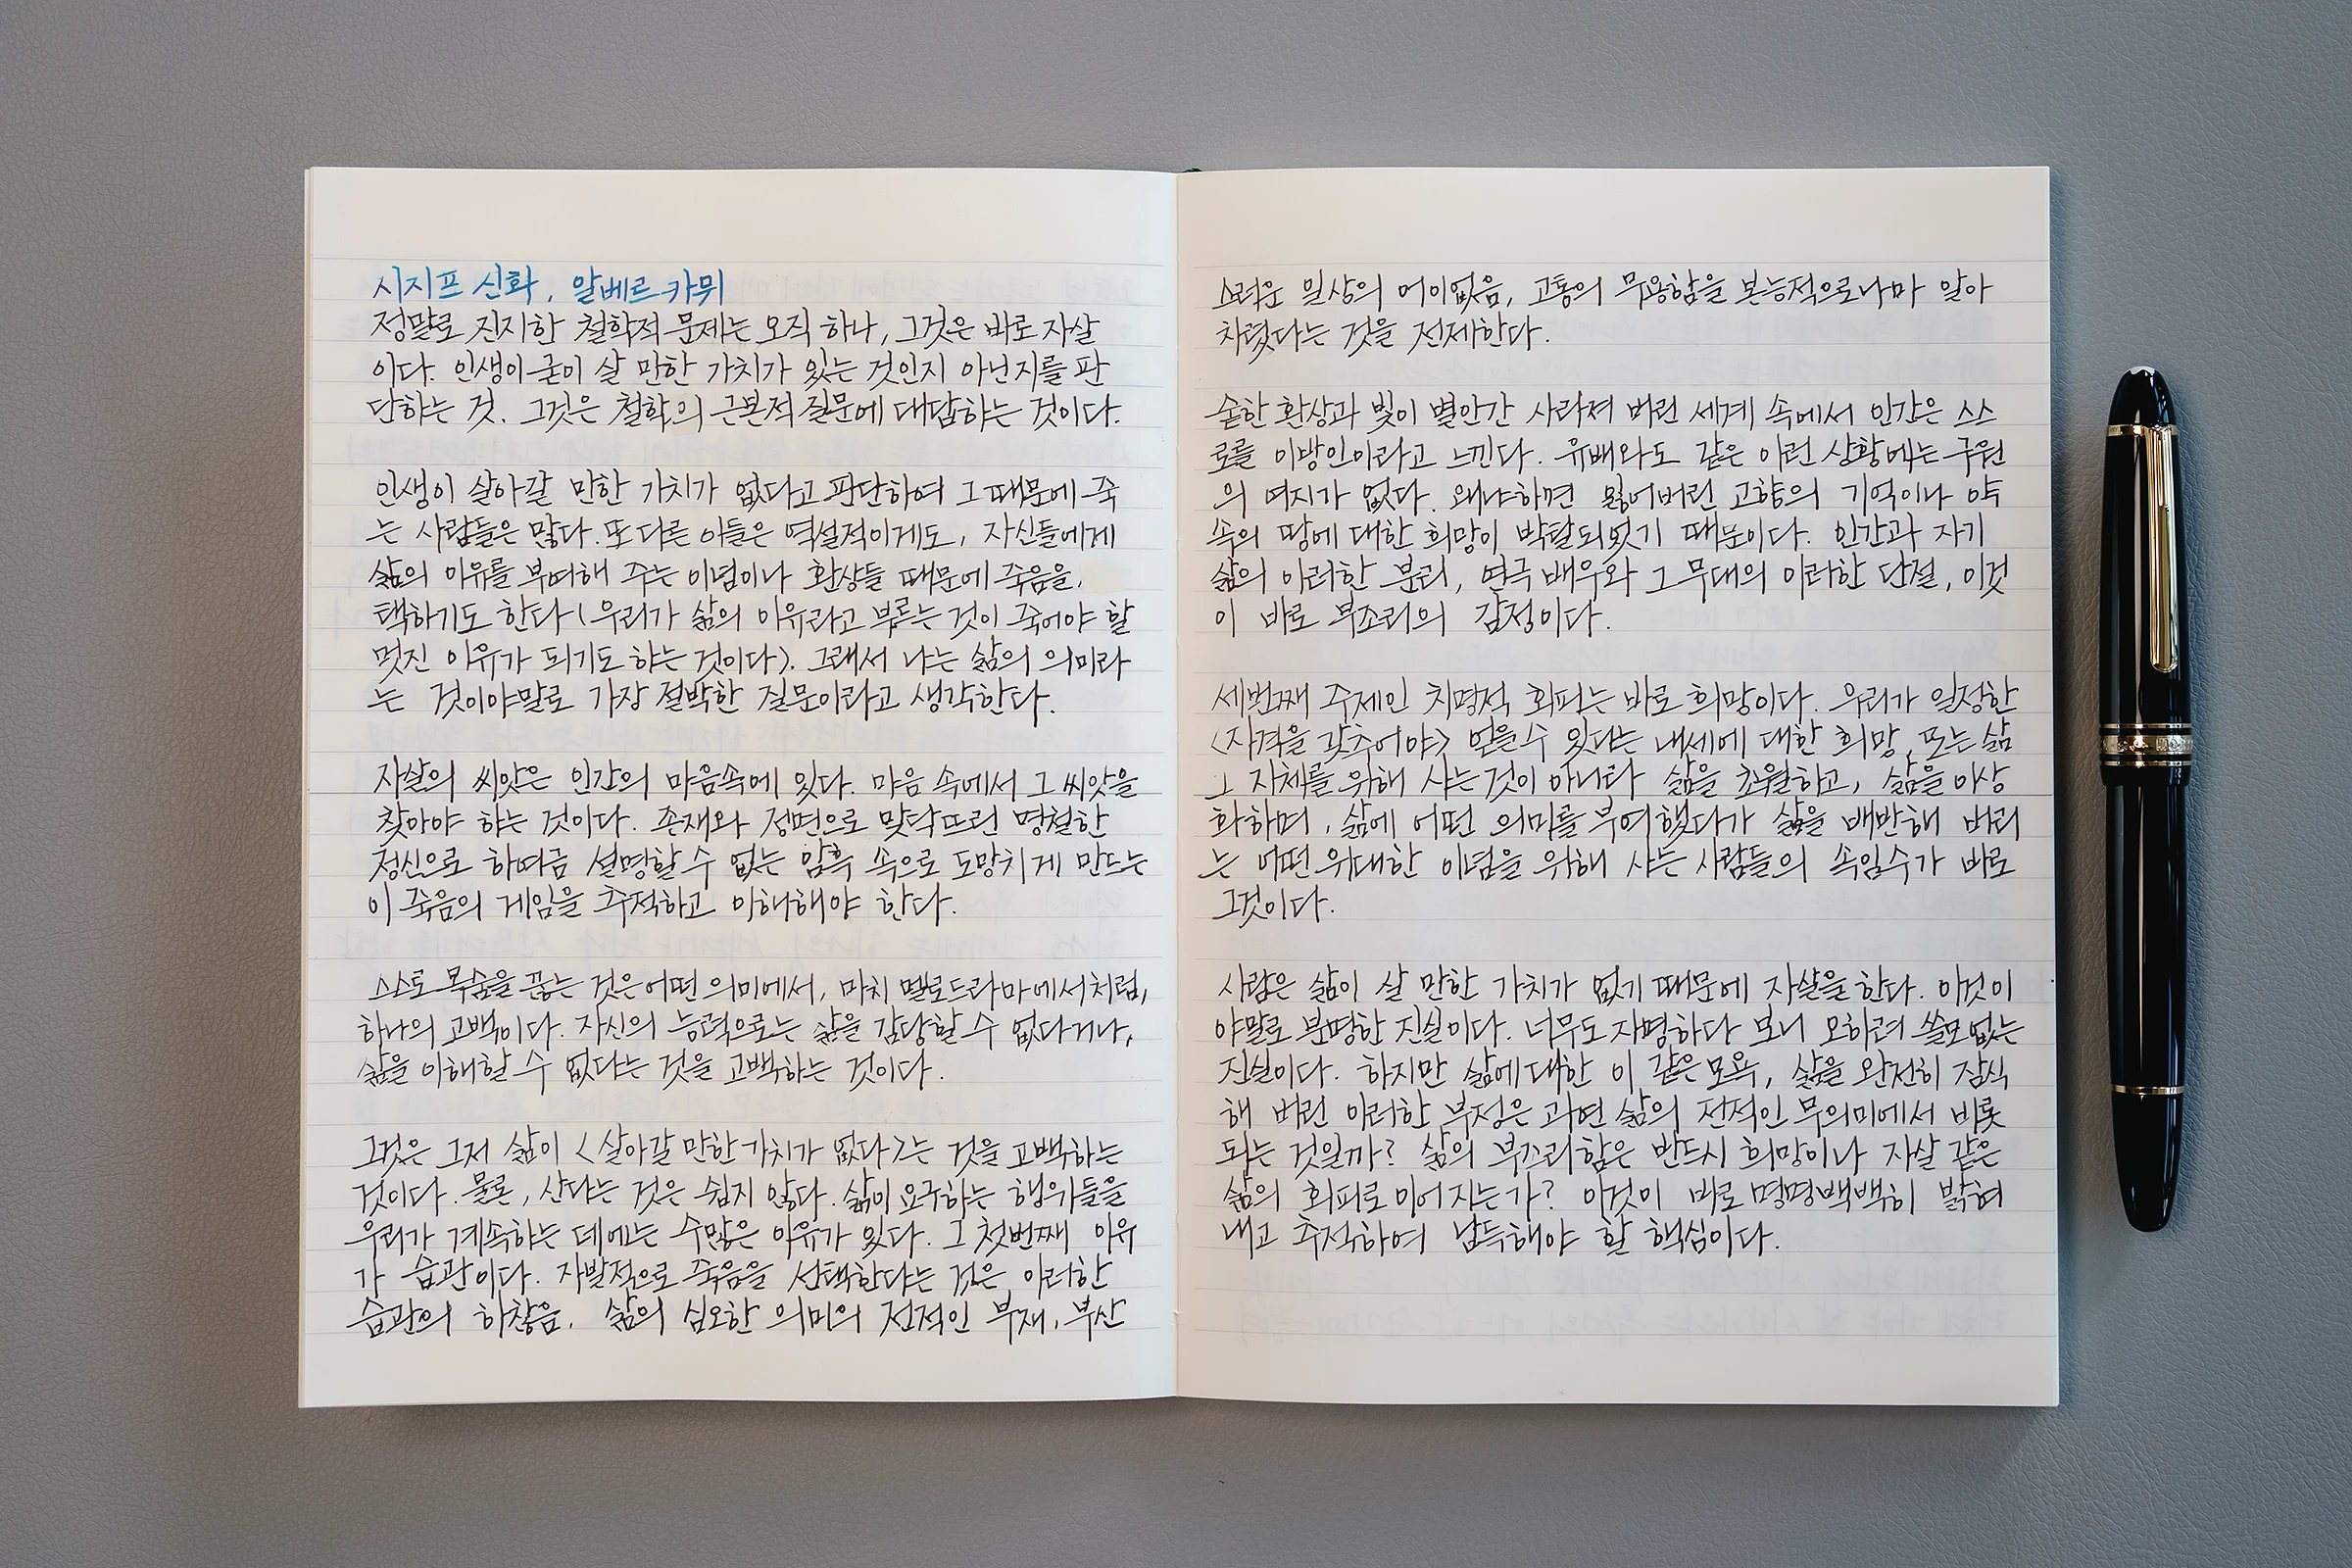 시지프 신화, 알베르 카뮈
정말로 진지한 철학적 문제는 오직 하나, 그것은 바로 자살
이다. 인생이 굳이 살 만한 가치가 있는 것인지 아닌지를 판
단하는 것. 그것은 철학의 근본적 질문에 대답하는 것이다.
인생이 살아갈 만한 가치가 없다고 판단하여 그 때문에 죽
는 사람들은 많다. 또 다른 이들은 역설적이게도, 자신들에게
삶의 이유를 부여해 주는 이념이나 환상들 때문에 죽음을
택하기도 한다(우리가 삶의 이유라고 부르는 것이 죽어야 할
멋진 이유가 되기도 하는 것이다). 그래서 나는 삶의 의미라
는 것이야말로 가장 절박한 질문이라고 생각한다.
자살의 씨앗은 인간의 마음속에 있다. 마음 속에서 그 씨앗을
찾아야 하는 것이다. 존재와 정면으로 맞닥뜨린 명철한
정신으로 하여금 설명할 수 없는 암흑 속으로 도망치게 만드는
이 죽음의 게임을 추적하고 이해해야 한다.
스스로 목숨을 끊는 것은 어떤 의미에서, 마치 멜로드라마에서처럼,
하나의 고백이다. 자신의 능력으로는 삶을 감당할 수 없다거나,
삶을 이해할 수 없다는 것을 고백하는 것이다.
그것은 그저 삶이 <살아갈 만한 가치가 없다>는 것을 고백하는
것이다. 물론, 산다는 것은 쉽지 않다. 삶이 요구하는 행위들을
우리가 계속하는 데에는 수많은 이유가 있다. 그 첫번째 이유
가 습관이다. 자발적으로 죽음을 선택한다는 것은 이러한
습관의 하찮음, 삶의 심오한 의미의 전적인 부재, 부산
스러운 일상의 어이없음, 고통의 무용함을 본능적으로나마 알아
차렸다는 것을 전제한다.
숱한 환상과 빛이 별안간 사라져 버린 세계 속에서 인간은 스스
로를 이방인이라고 느낀다. 유배와도 같은 이런 상황에는 구원
의 여지가 없다. 왜냐하면 잃어버린 고향의 기억이나 약
속의 땅에 대한 희망이 박탈되었기 때문이다. 인간과 자기
삶의 이러한 분리, 연극 배우와 그 무대의 이러한 단절, 이것
이 바로 부조리의 감정이다.
세번째 주제인 치명적 회피는 바로 희망이다. 우리가 일정한
<자격을 갖추어야> 얻을 수 있다는 내세에 대한 희망, 또는 삶
그 자체를 위해 사는 것이 아니라 삶을 초월하고, 삶을 이상
화하며, 삶에 어떤 의미를 부여했다가 삶을 배반해 버리
는 어떤 위대한 이념을 위해 사는 사람들의 속임수가 바로
그것이다.
사람은 삶이 살 만한 가치가 없기 때문에 자살을 한다. 이것이
야말로 분명한 진실이다. 너무도 자명하다 보니 오히려 쓸모없는
진실이다. 하지만 삶에 대한 이 같은 모욕, 삶을 완전히 잠식
해 버린 이러한 부정은 과연 삶의 전적인 무의미에서 비롯
되는 것일까? 삶의 부조리함은 반드시 희망이나 자살 같은
삶의 회피로 이어지는가? 이것이 바로 명명백백히 밝혀
내고 추적하여 납득해야 할 핵심이다.